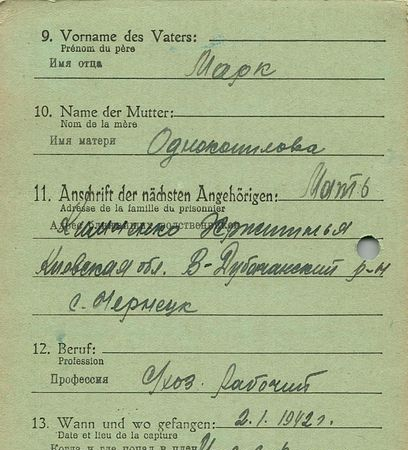 9. Vorname des Vaters:
Prénom du père
Имя отца Марк
10. Name der Mutter:
Nom de la mère
Имя матери Однокопилова
11. Anschrift der nächsten Angehörigen: Мать
Adresse de la famille du prisonnier
Адрес родственников
Христинья
Киевская обл. В-Дубечанский р-н
с. Чернецк
12. Beruf:
Profession
Профессия С/хоз. рабочий
13. Wann und wo gefangen: 2.1.1942 г.
Date et lieu de la capture
Когда и где попал в плен